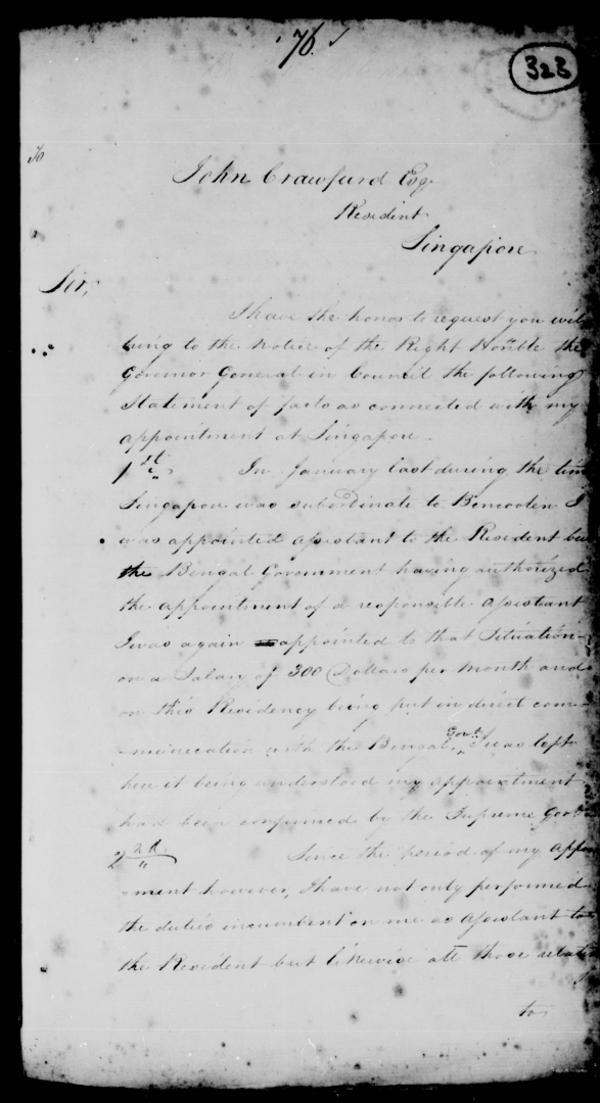 76.
323
To
John Crawfurd Esq.
Resident
Singapore
Sir,
I have the honor to request you will
bring to the Notice of the Right Honble the
Governor General in Council the following
Statement of facts as connected with my
appointment at Singapore.
1st In January last during the time
Singapore was subordinate to Bencoolen I
was appointed assistant to the Resident but
the Bengal Government having authorized
the appointment of a responsible assistant
I was again appointed to that Situation
on a Salary of 300 Dollars per Month and
on this Residency being put in direct com-
-munication with the Bengal Govt. I was left
here it being understood my appointment
had been confirmed by the Supreme Govt.
2nd Since the period of my appoint
-ment however, I have not only performed
the duties incumbent on me as assistant to
the Resident but likewise all those
to